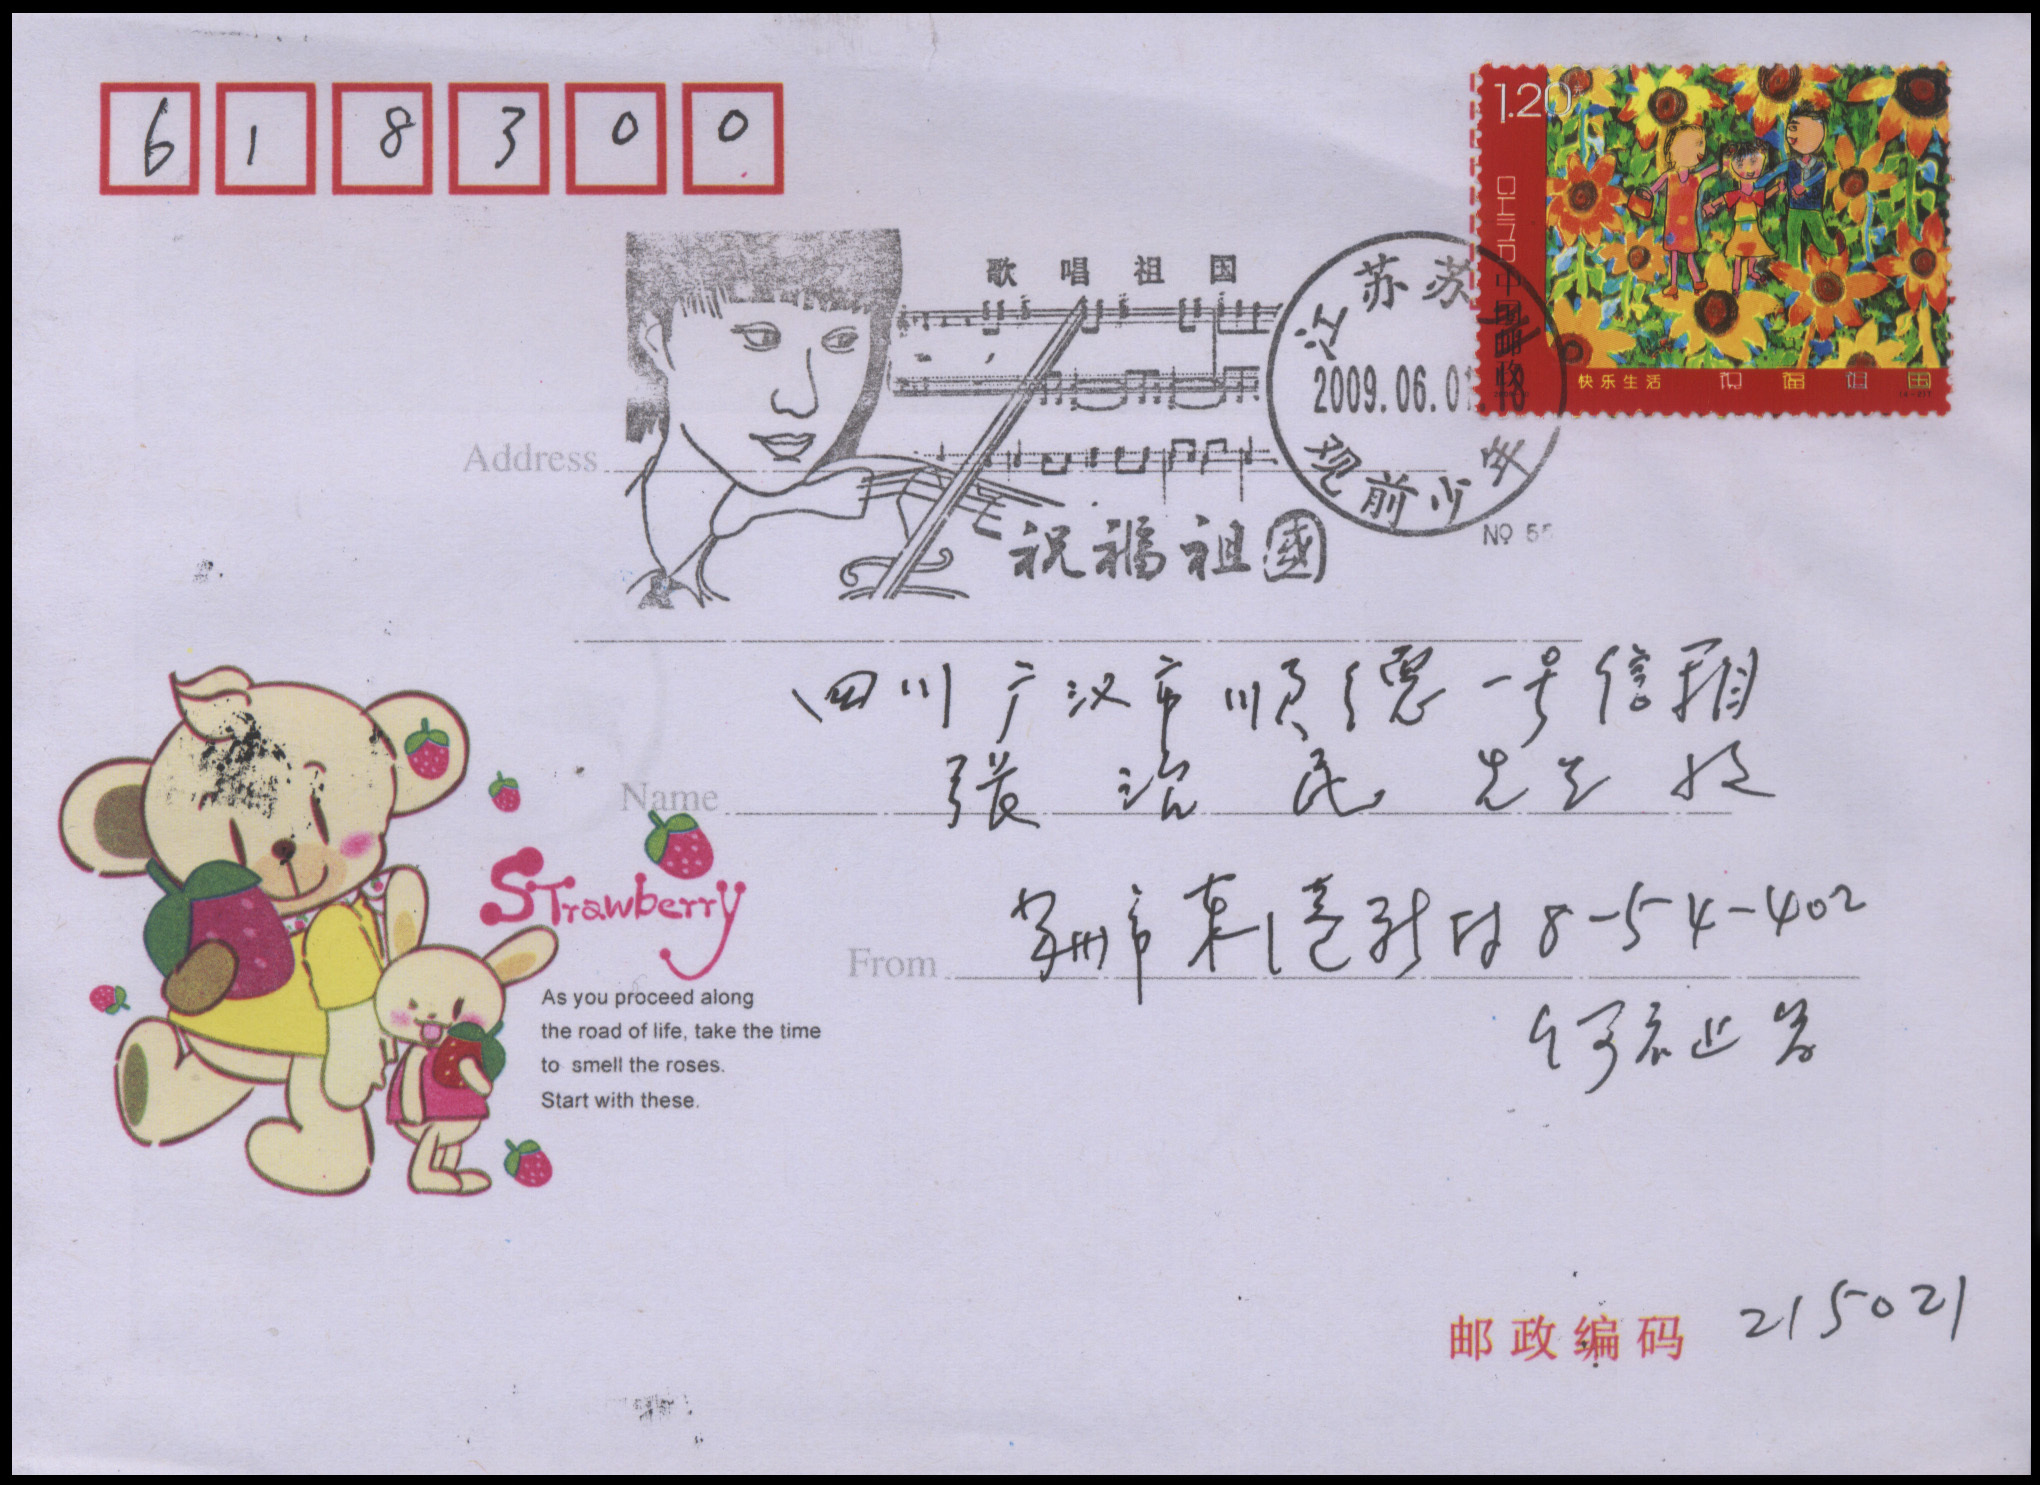 618300
1.20元
CHINA
中国邮政
快乐生活 祝福祖国
歌唱祖国
江苏苏州
2009.06.01.18
观前少年
№ 55
祝福祖國
Address
四川广汉市顺德一号信箱
Name
張治民 先生 收
Strawberry
苏州市东港新村8-54-402
From
As you proceed along
the road of life, take the time
to smell the roses.
Start with these.
何
邮政编码 215021